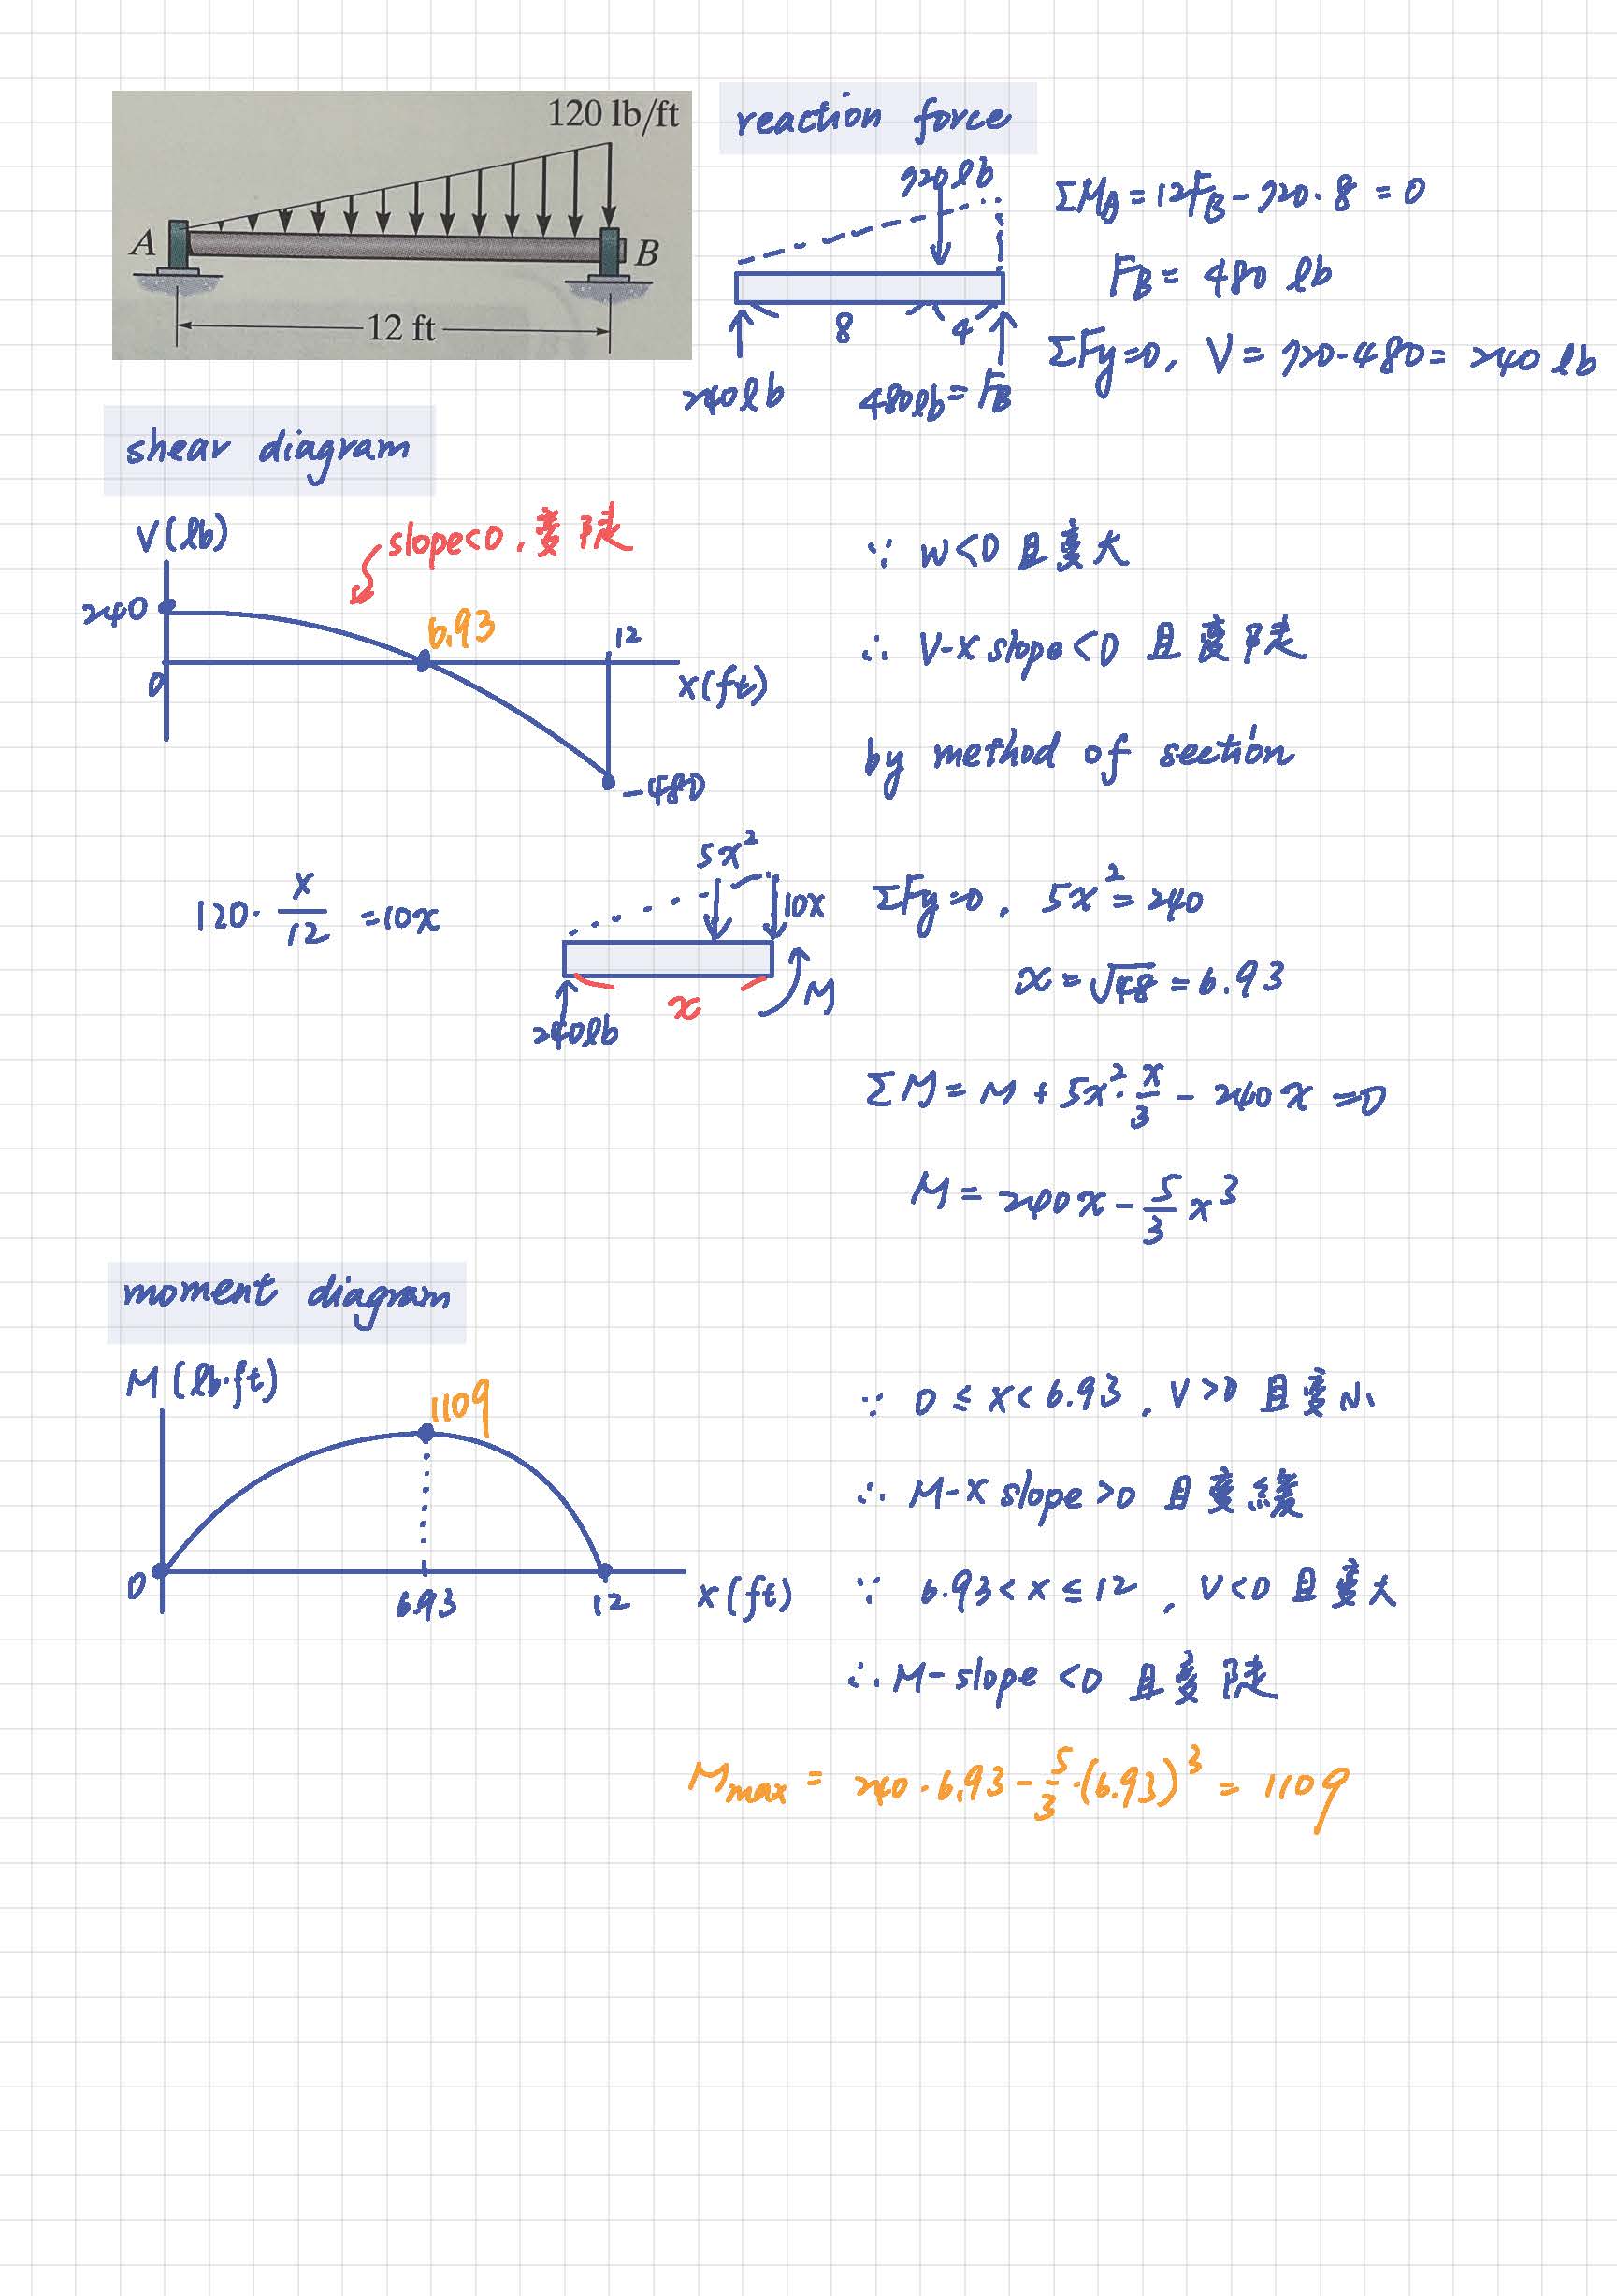 120 lb/ft
A
B
12 ft
reaction force
720lb
8
4
240lb
480lb = F_B
ΣM_A = 12F_B - 720·8 = 0
F_B = 480 lb
ΣFy=0, V = 720-480 = 240 lb
shear diagram
V(lb)
slope<0, 變陡
240
6.93
12
0
x(ft)
-480
∵ w<0 且變大
∴ V-x slope<0 且變陡
by method of section
120· x/12 = 10x
5x²
10x
M
x
240lb
ΣFy=0, 5x² = 240
x = √48 = 6.93
ΣM = M + 5x²· x/3 - 240x = 0
M = 240x - 5/3 x³
moment diagram
M (lb·ft)
1109
0
6.93
12
x(ft)
∵ 0 ≤ x < 6.93, V>0 且變小
∴ M-x slope>0 且變緩
∵ 6.93 < x ≤ 12, V<0 且變大
∴ M-slope <0 且變陡
M_max = 240·6.93 - 5/3·(6.93)³ = 1109